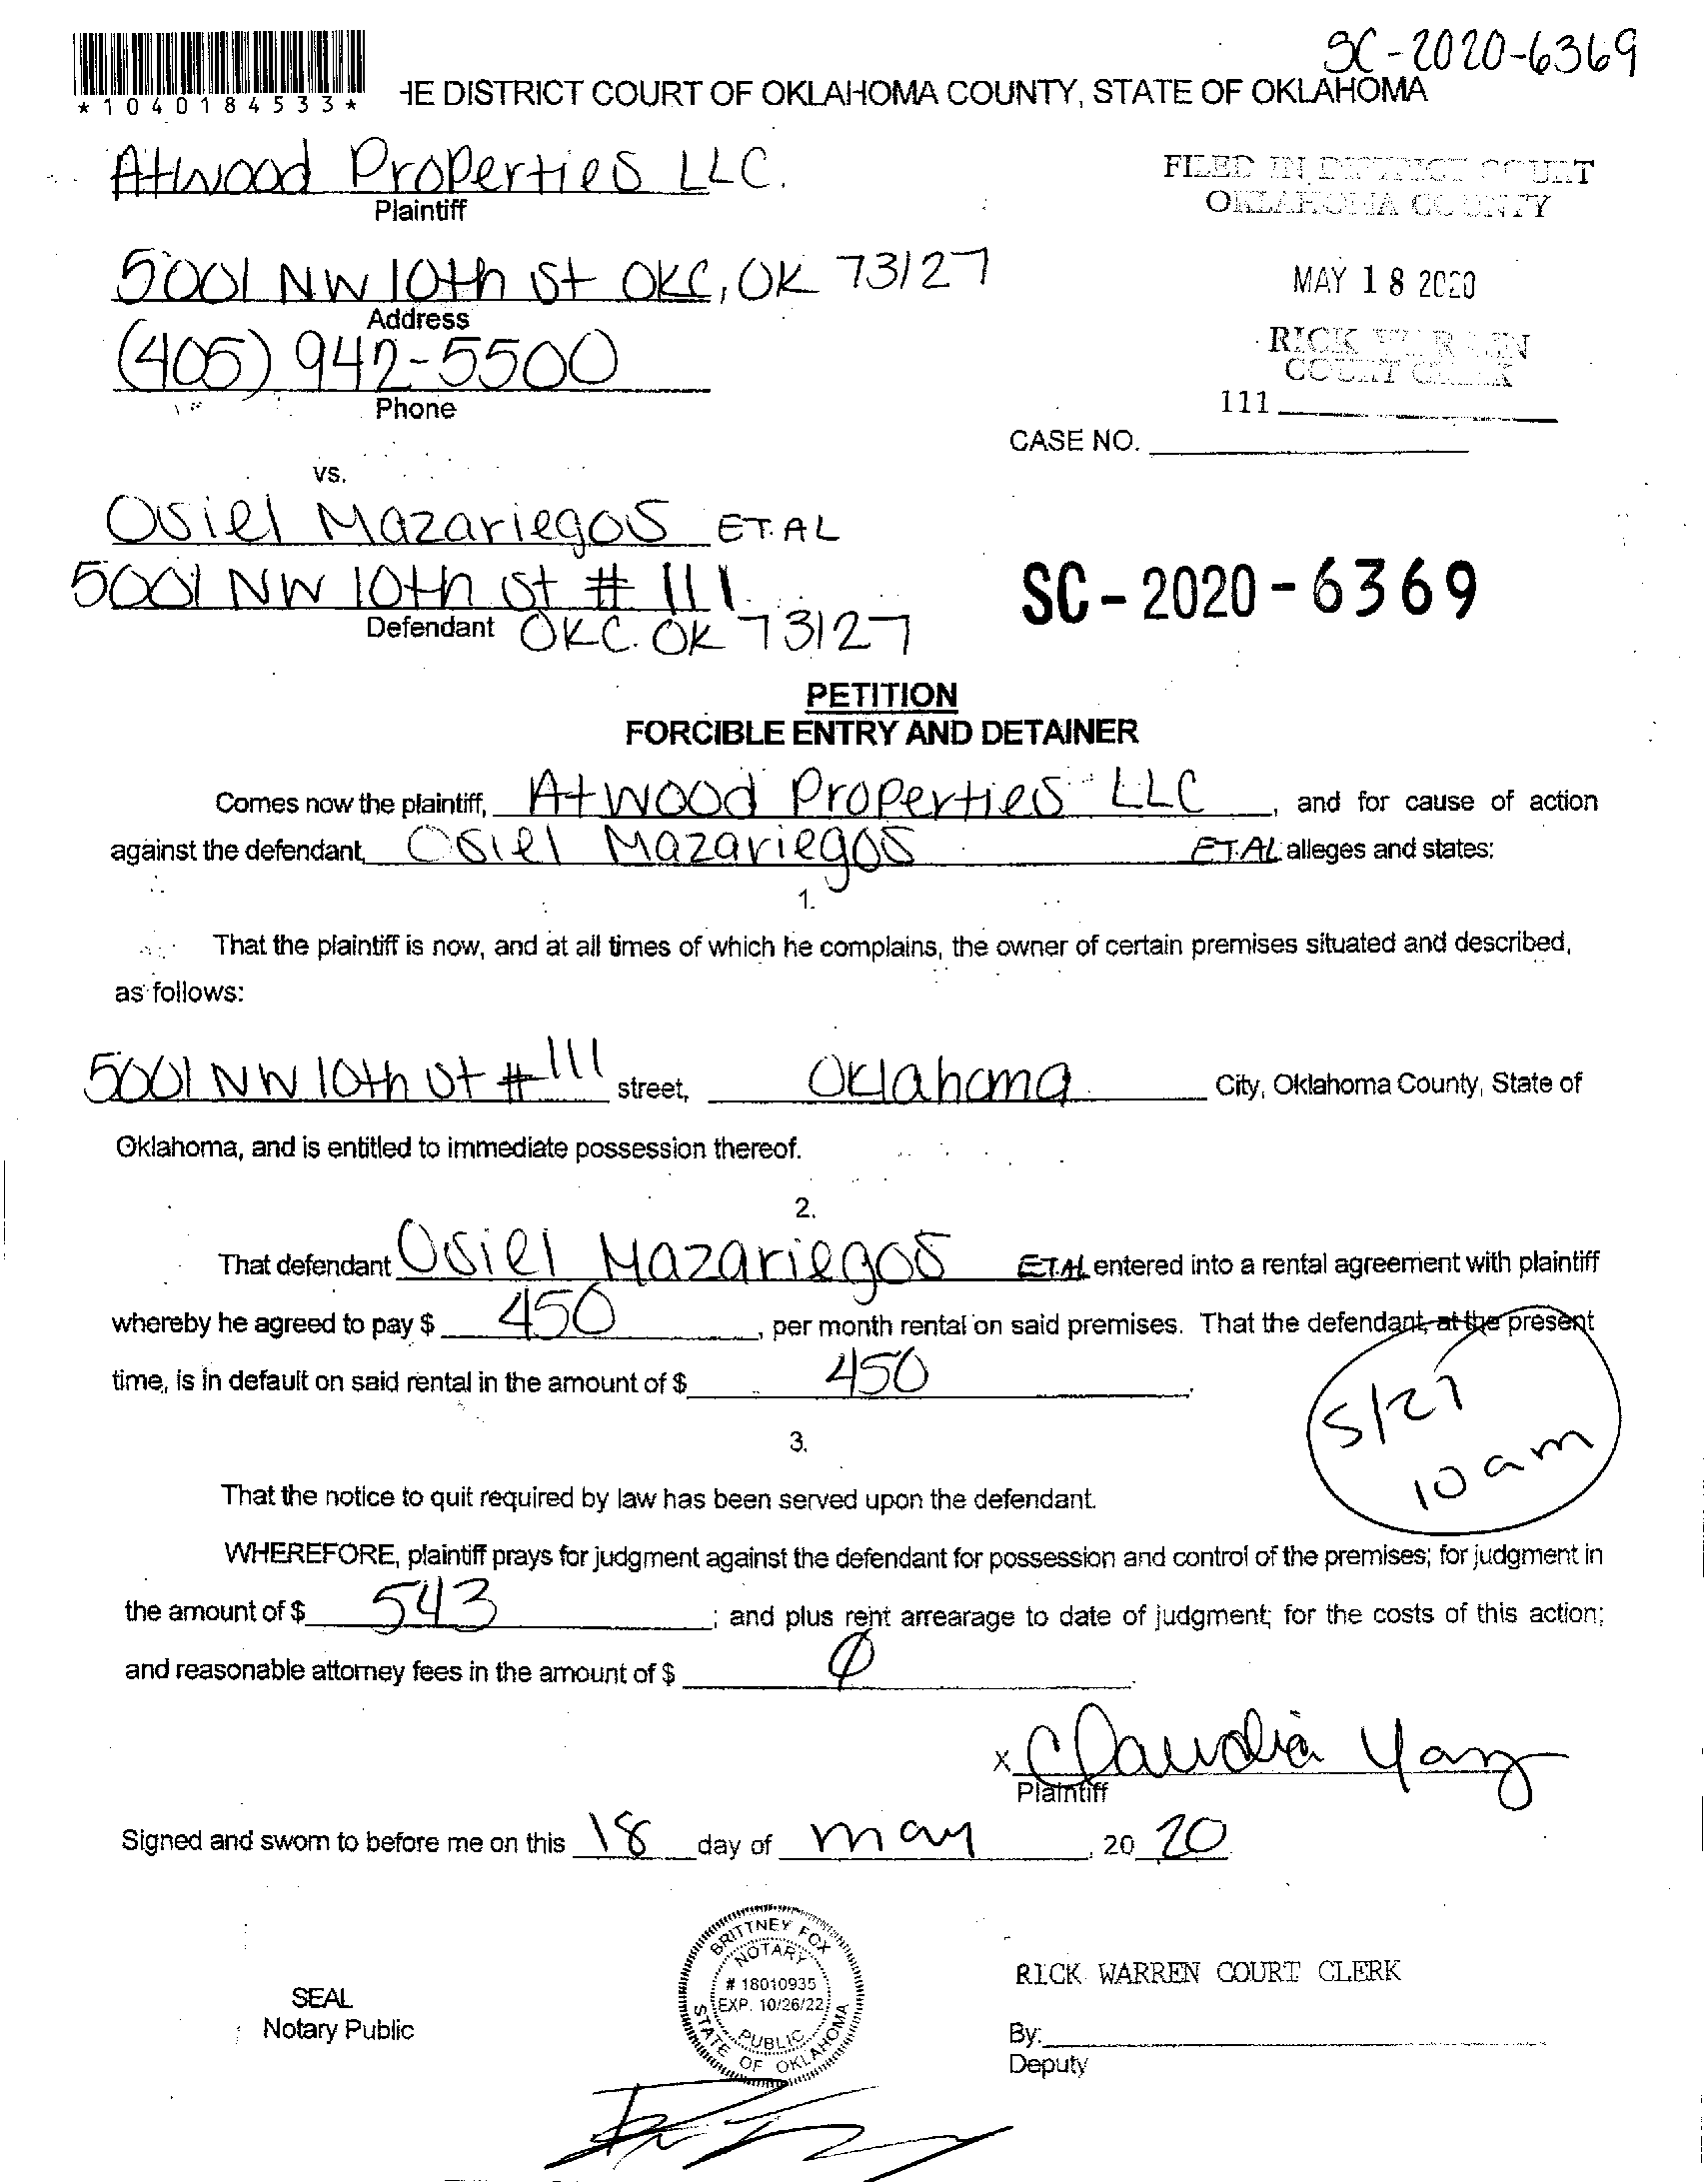 SC-2020-6369
*1040184533*
HE DISTRICT COURT OF OKLAHOMA COUNTY, STATE OF OKLAHOMA
Atwood Properties LLC.
Plaintiff
FILED IN DISTRICT COURT
OKLAHOMA COUNTY
5001 NW 10th St OKC, OK 73127
Address
MAY 18 2020
(405) 942-5500
Phone
RICK WARREN
COURT CLERK
111
CASE NO.
vs.
Osiel Mazariegos ET.AL
5001 NW 10th St # 111
Defendant OKC. OK 73127
SC-2020-6369
PETITION
FORCIBLE ENTRY AND DETAINER
Comes now the plaintiff, Atwood Properties LLC, and for cause of action
against the defendant, Osiel Mazariegos ET.AL alleges and states:
1.
That the plaintiff is now, and at all times of which he complains, the owner of certain premises situated and described,
as follows:
5001 NW 10th St #111 street, Oklahoma City, Oklahoma County, State of
Oklahoma, and is entitled to immediate possession thereof.
2.
That defendant Osiel Mazariegos ET.AL entered into a rental agreement with plaintiff
whereby he agreed to pay $ 450, per month rental on said premises. That the defendant, at the present
time, is in default on said rental in the amount of $ 450.
5/27
10am
3.
That the notice to quit required by law has been served upon the defendant.
WHEREFORE, plaintiff prays for judgment against the defendant for possession and control of the premises; for judgment in
the amount of $ 543; and plus rent arrearage to date of judgment; for the costs of this action;
and reasonable attorney fees in the amount of $ Ø.
x Claudia Yanz
Plaintiff
Signed and sworn to before me on this 18 day of may, 20 20
BRITTNEY FOX
NOTARY
# 18010935
EXP. 10/26/22
PUBLIC
STATE OF OKLAHOMA
SEAL
Notary Public
RICK WARREN COURT CLERK
By:
Deputy